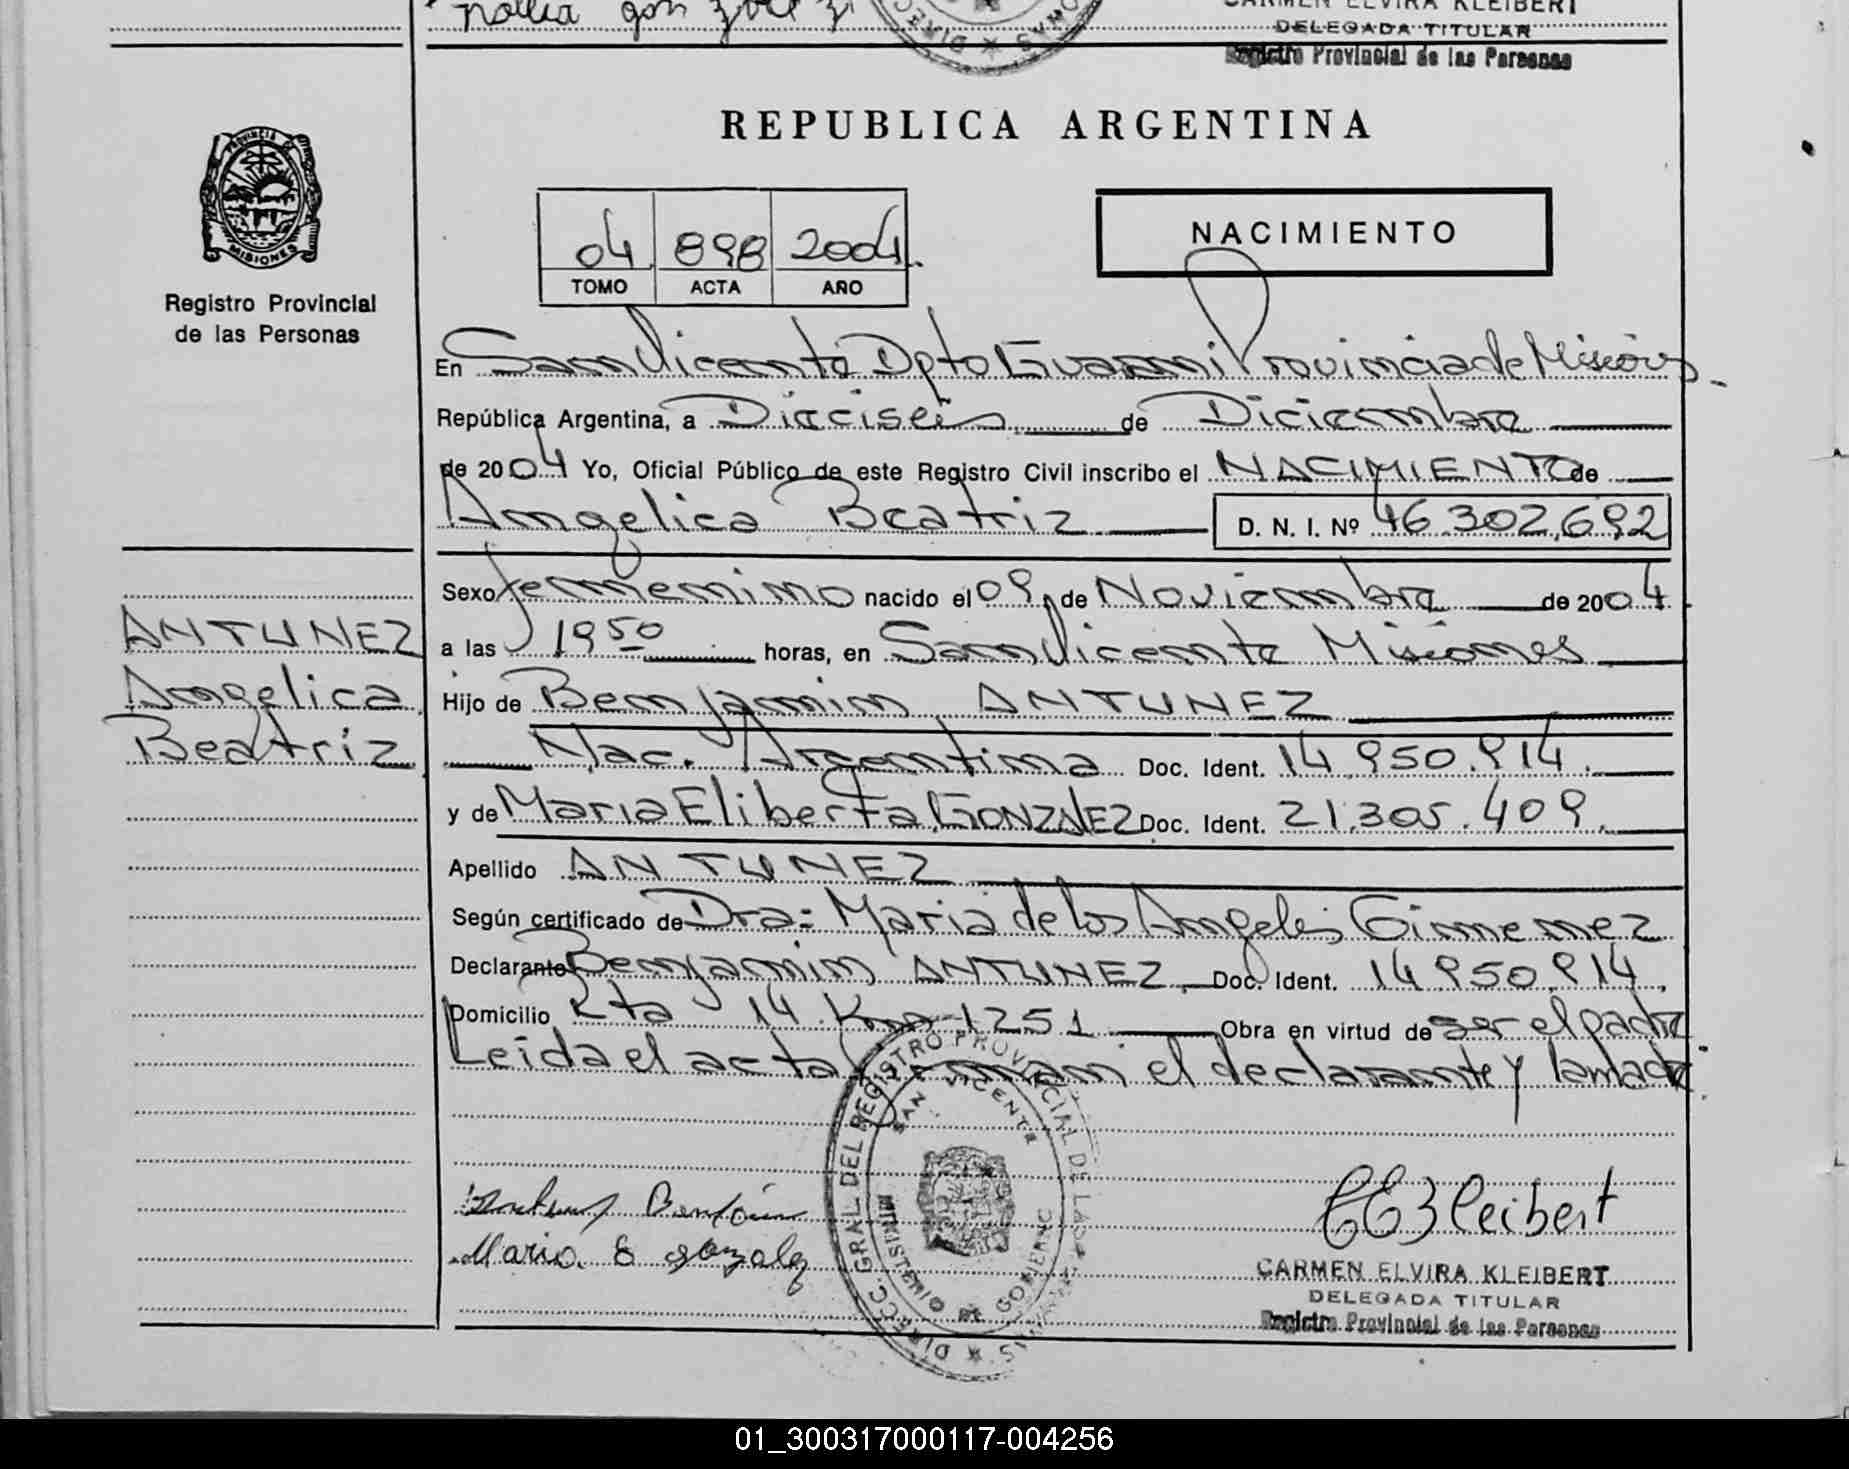 CARMEN ELVIRA KLEIBERT
DELEGADA TITULAR
Registro Provincial de las Personas
REPUBLICA ARGENTINA
PROVINCIA DE
MISIONES
Registro Provincial
de las Personas
04 898 2004
TOMO ACTA AÑO
NACIMIENTO
En San Vicente Dpto Guarani Provincia de Misiones
República Argentina, a Dieciseis de Diciembre
de 2004 Yo, Oficial Público de este Registro Civil inscribo el NACIMIENTO de
Angelica Beatriz D. N. I. Nº 46.302.692
Sexo femenino nacido el 09 de Noviembre de 2004
a las 19 50 horas, en San Vicente Misiones
Hijo de Benjamin ANTUNEZ
Nac. Argentina Doc. Ident. 14.950.914.
y de Maria Eliberta GONZALEZ Doc. Ident. 21.305.409.
Apellido ANTUNEZ
Según certificado de Dra: Maria de los Angeles Gimenez
Declarante Benjamin ANTUNEZ Doc. Ident. 14.950.914.
Domicilio Rta 14 Km 1251 Obra en virtud de ser el padre
Leida el acta firman el declarante y la madre
ANTUNEZ
Angelica
Beatriz
DIRECC. GRAL. DEL REGISTRO PROVINCIAL DE LAS
SAN VICENTE
MINISTERIO DE GOBIERNO
Maria E gonzalez
CARMEN ELVIRA KLEIBERT
DELEGADA TITULAR
Registro Provincial de las Personas
01_300317000117-004256